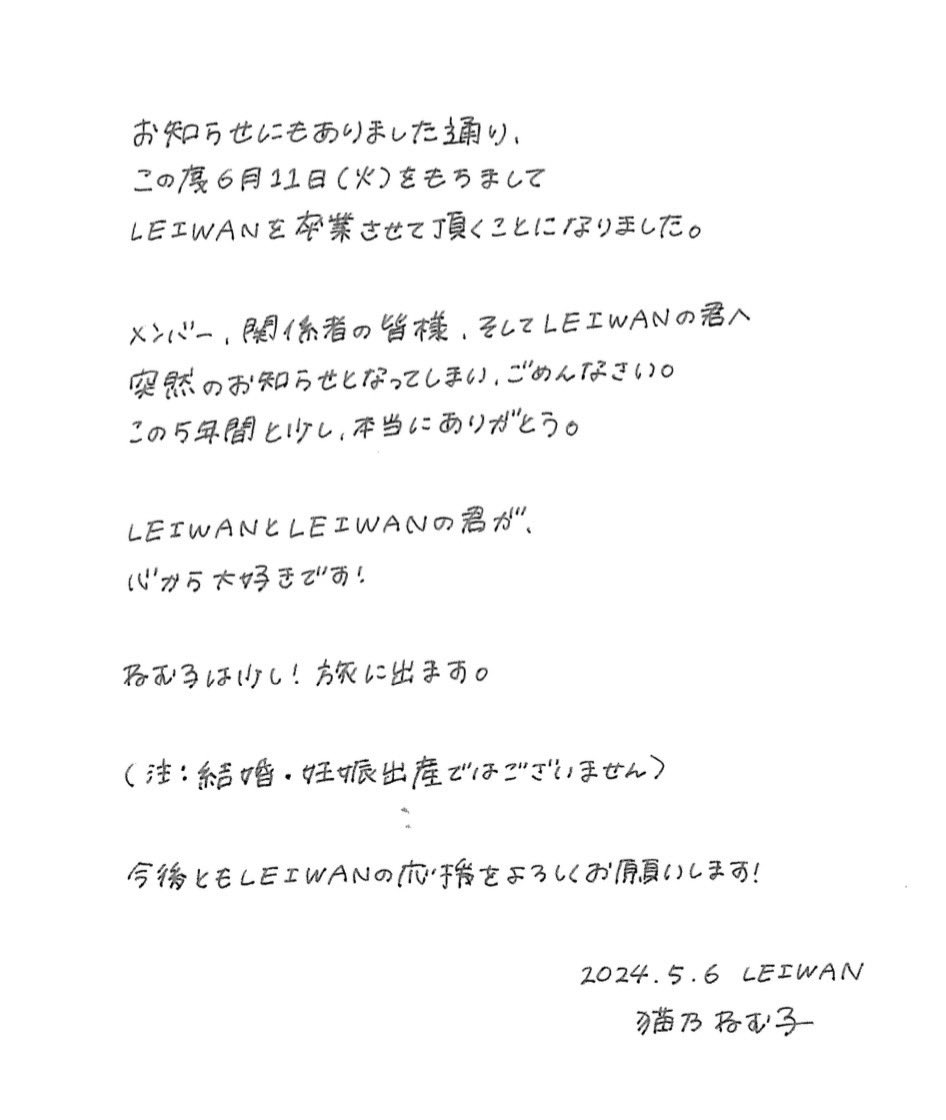 お知らせにもありました通り、
この度6月11日(火)をもちまして
LEIWANを卒業させて頂くことになりました。
メンバー、関係者の皆様、そしてLEIWANの君へ
突然のお知らせとなってしまい、ごめんなさい。
この5年間と少し、本当にありがとう。
LEIWANとLEIWANの君が、
心から大好きです!
ねむ子は少し!旅に出ます。
(注:結婚・妊娠出産ではございません)
今後ともLEIWANの応援をよろしくお願いします!
2024.5.6 LEIWAN
猫乃ねむ子